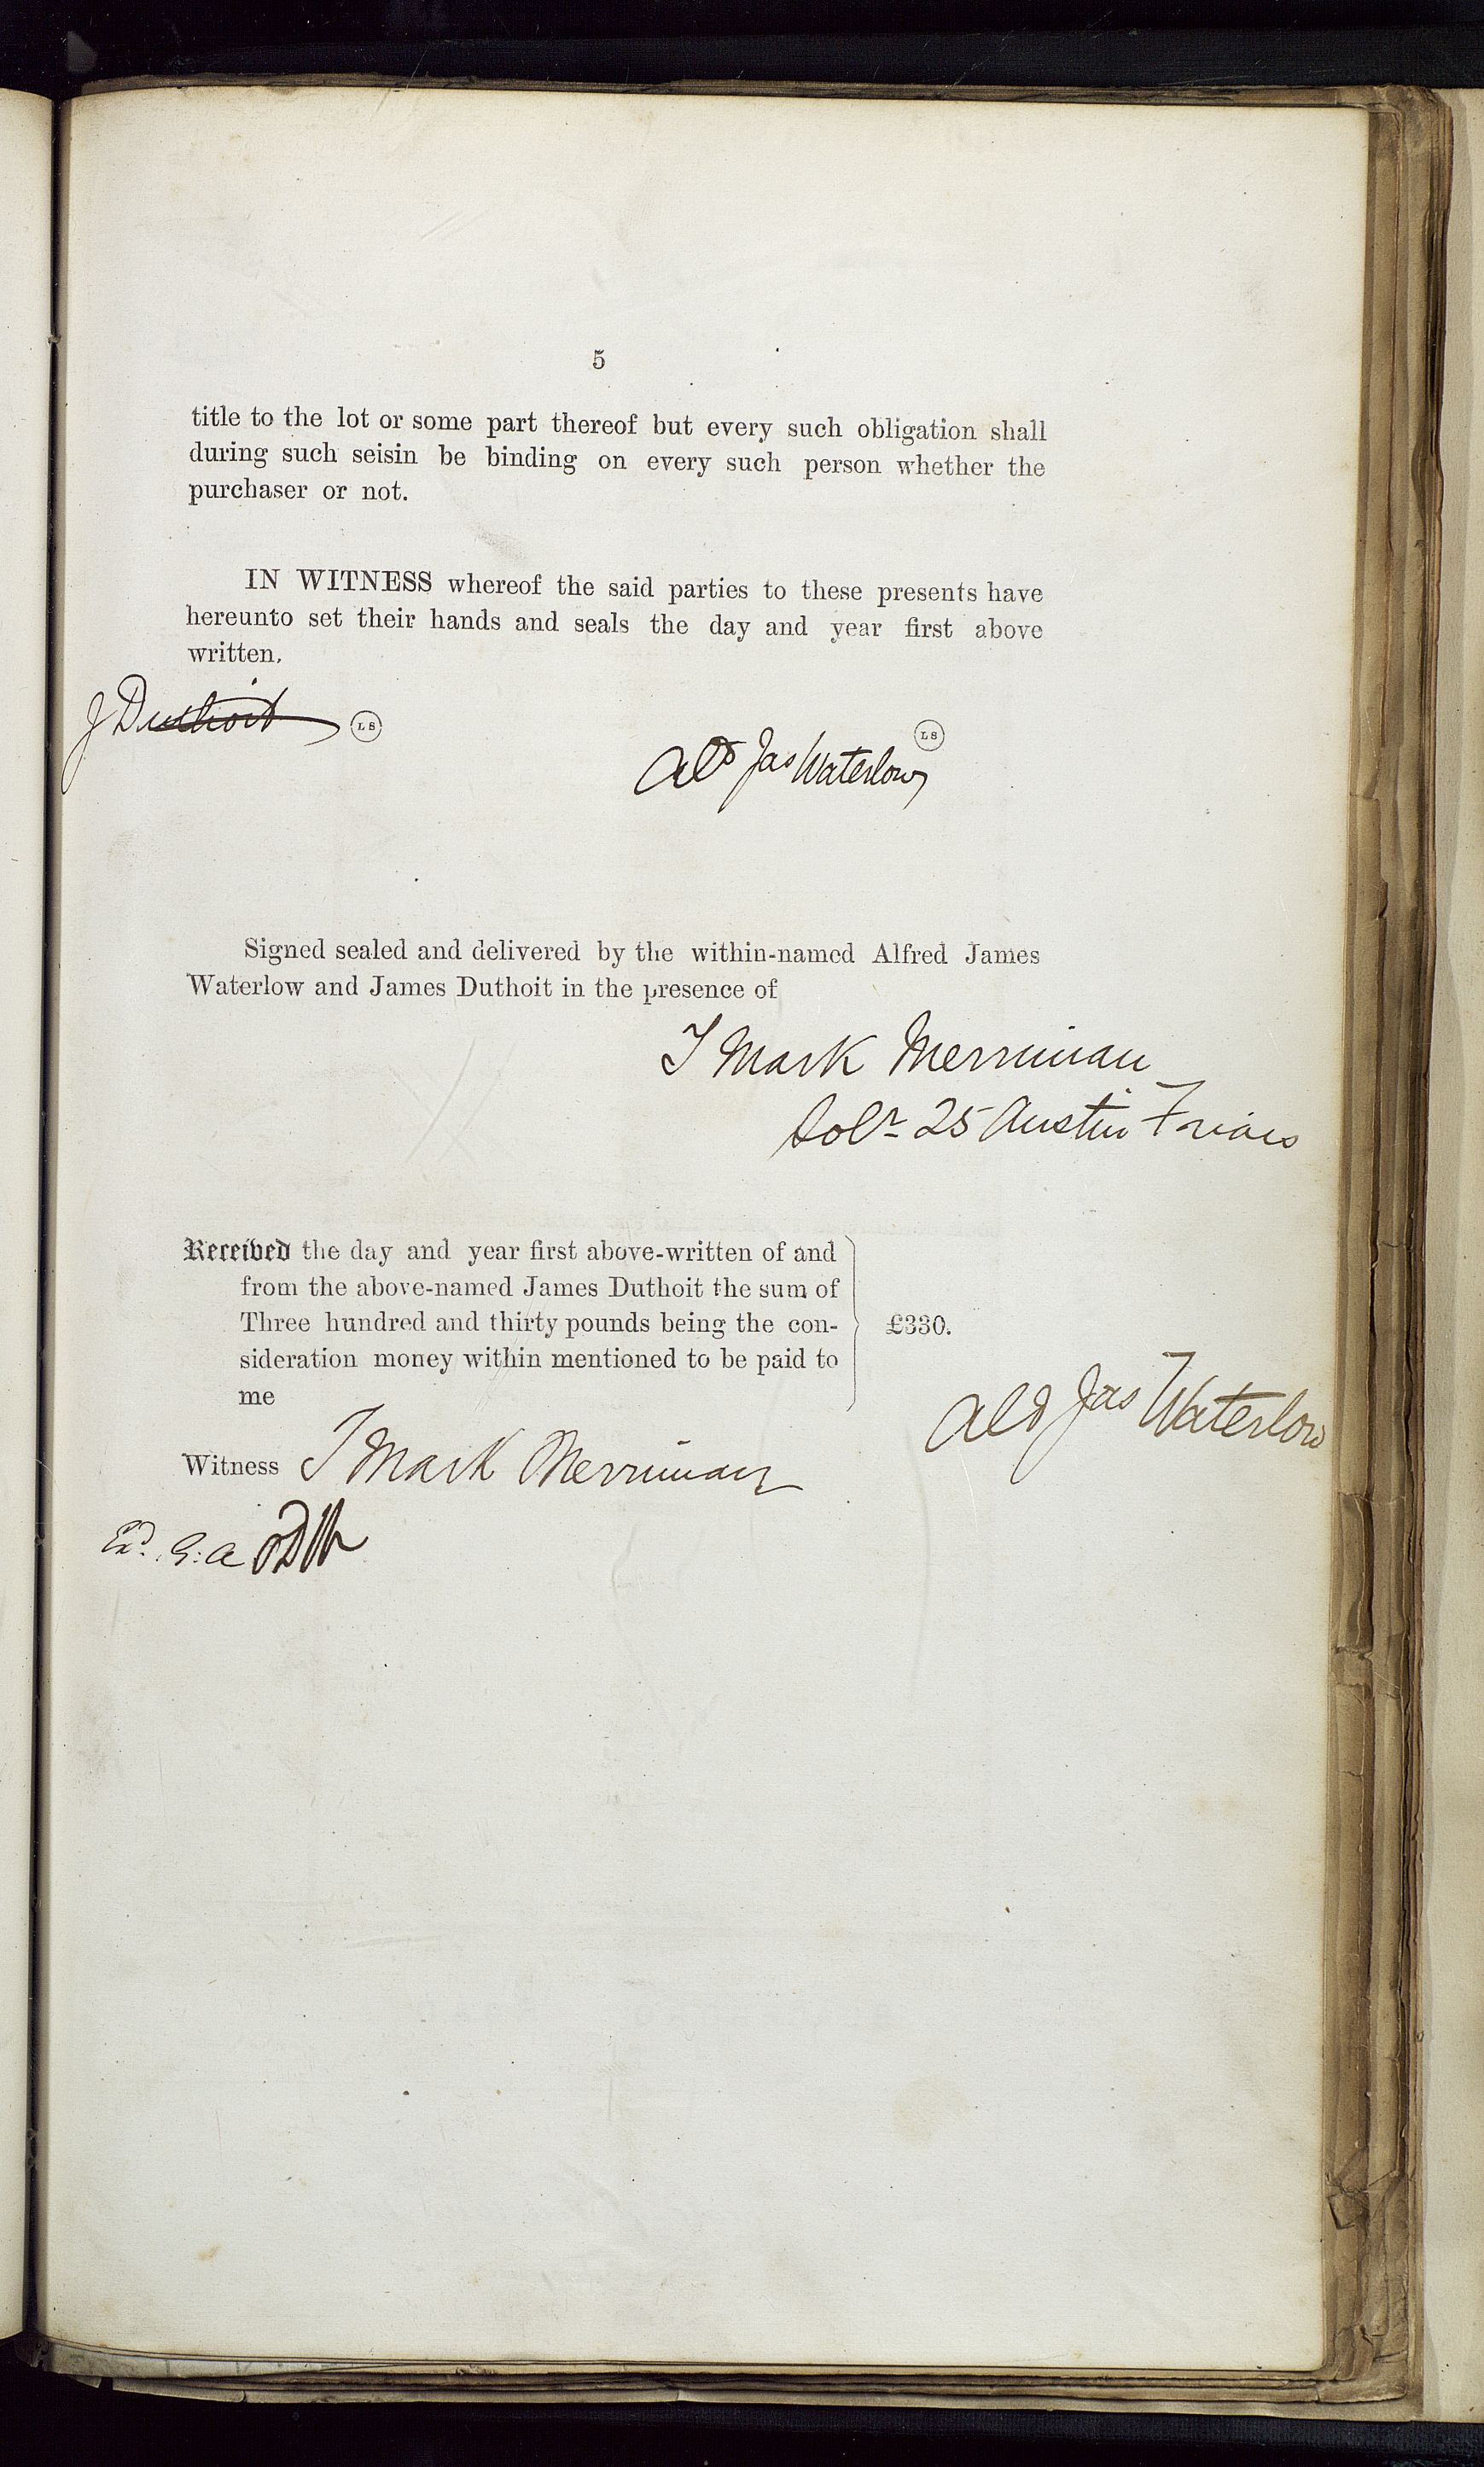 5
title to the lot or some part thereof but every such obligation shall
during such seisin be binding on every such person whether the
purchaser or not.
IN WITNESS whereof the said parties to these presents have
hereunto set their hands and seals the day and year first above
written.
J Duthoit LS
LS
Alfd Jas Waterlow
Signed sealed and delivered by the within-named Alfred James
Waterlow and James Duthoit in the presence of
T Mark Merriman
Solr 25 Austin Friars
Received the day and year first above-written of and
from the above-named James Duthoit the sum of
Three hundred and thirty pounds being the con-
sideration money within mentioned to be paid to
me
£330.
Alfd Jas Waterlow
Witness T Mark Merriman
Exd. G: a